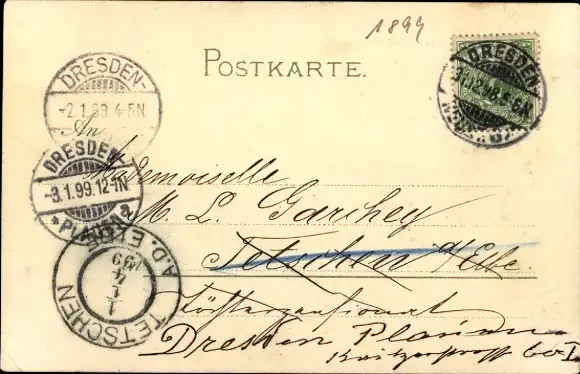 1899
POSTKARTE.
DRESDEN-
31.12.98.5-6N.
DRESDEN-
-2.1.99.4-5N.
An
DRESDEN-
-3.1.99.12-1N
* PLAUEN a
Mademoiselle
M. L. Garchey
Tetschen a/Elbe
Töchterpensionat
Dresden Plauen
TETSCHEN
A.D. ELBE
99